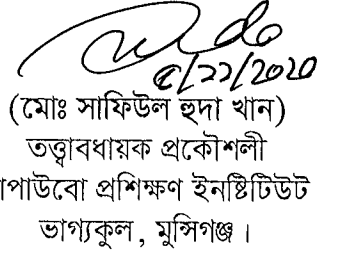 (মোঃ সাফিউল হুদা খান)
তত্ত্বাবধায়ক প্রকৌশলী
পাউবো প্রশিক্ষণ ইনষ্টিটিউট
ভাগ্যকুল, মুন্সিগঞ্জ।